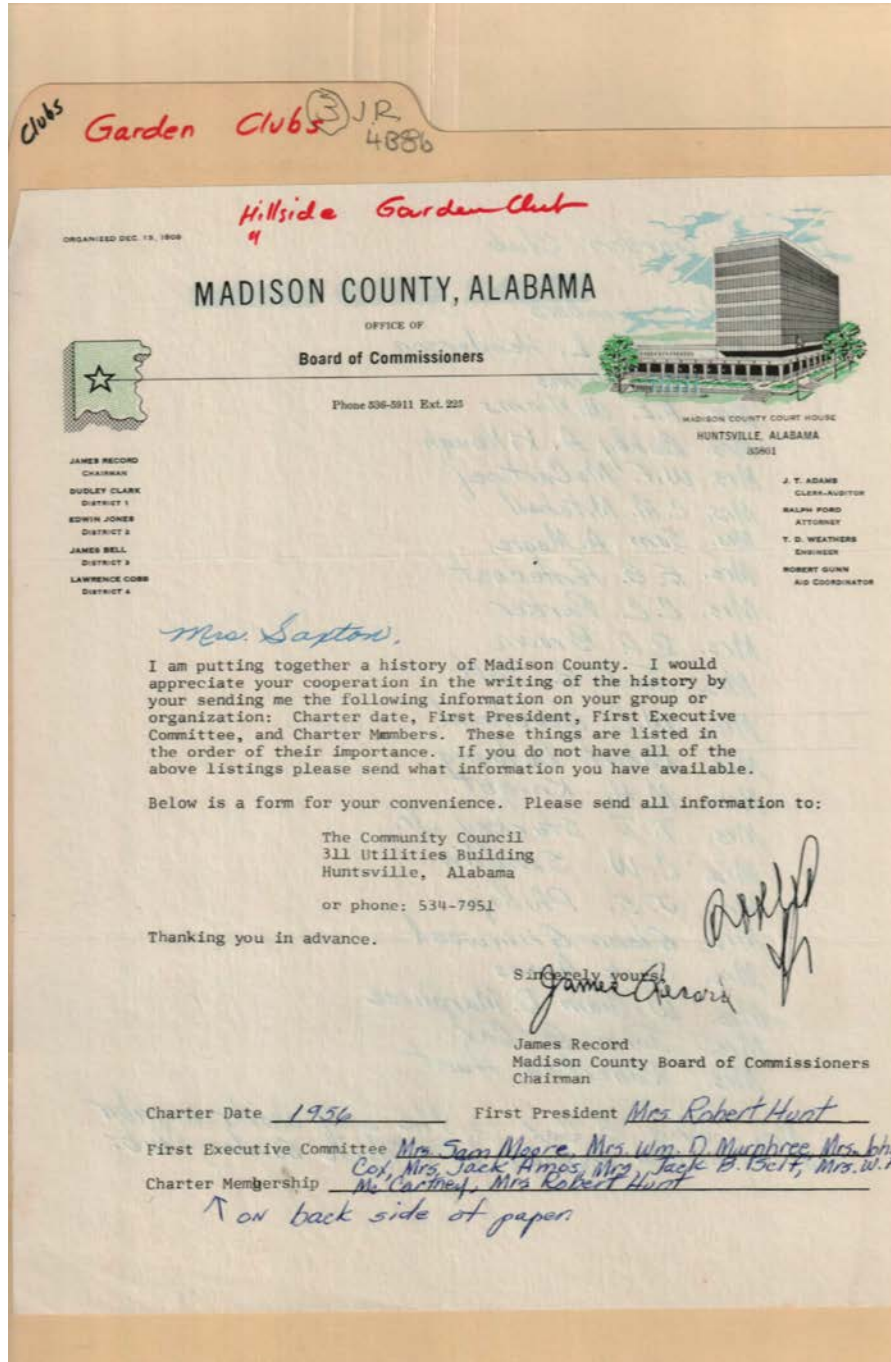 Clubs
Garden Clubs 3 J.R.
4B86
Hillside Garden Club
ORGANIZED DEC. 13, 1808
MADISON COUNTY, ALABAMA
OFFICE OF
Board of Commissioners
Phone 536-5911 Ext. 225
MADISON COUNTY COURT HOUSE
HUNTSVILLE, ALABAMA
35801
JAMES RECORD
CHAIRMAN
DUDLEY CLARK
DISTRICT 1
EDWIN JONES
DISTRICT 2
JAMES BELL
DISTRICT 3
LAWRENCE COBB
DISTRICT 4
J. T. ADAMS
CLERK-AUDITOR
RALPH FORD
ATTORNEY
T. D. WEATHERS
ENGINEER
ROBERT GUNN
AID COORDINATOR
Mrs. Saxton,
I am putting together a history of Madison County. I would
appreciate your cooperation in the writing of the history by
your sending me the following information on your group or
organization: Charter date, First President, First Executive
Committee, and Charter Members. These things are listed in
the order of their importance. If you do not have all of the
above listings please send what information you have available.
Below is a form for your convenience. Please send all information to:
The Community Council
311 Utilities Building
Huntsville, Alabama
or phone: 534-7951
Thanking you in advance.
Sincerely yours,
James Record
James Record
Madison County Board of Commissioners
Chairman
Charter Date 1956 First President Mrs Robert Hunt
First Executive Committee Mrs. Sam Moore, Mrs. Wm. D. Murphree, Mrs. Joh
Cox, Mrs. Jack Amos, Mrs. Jack B. Mrs. W.
Charter Membership McCartney, Mrs Robert Hunt
↑ on back side of paper